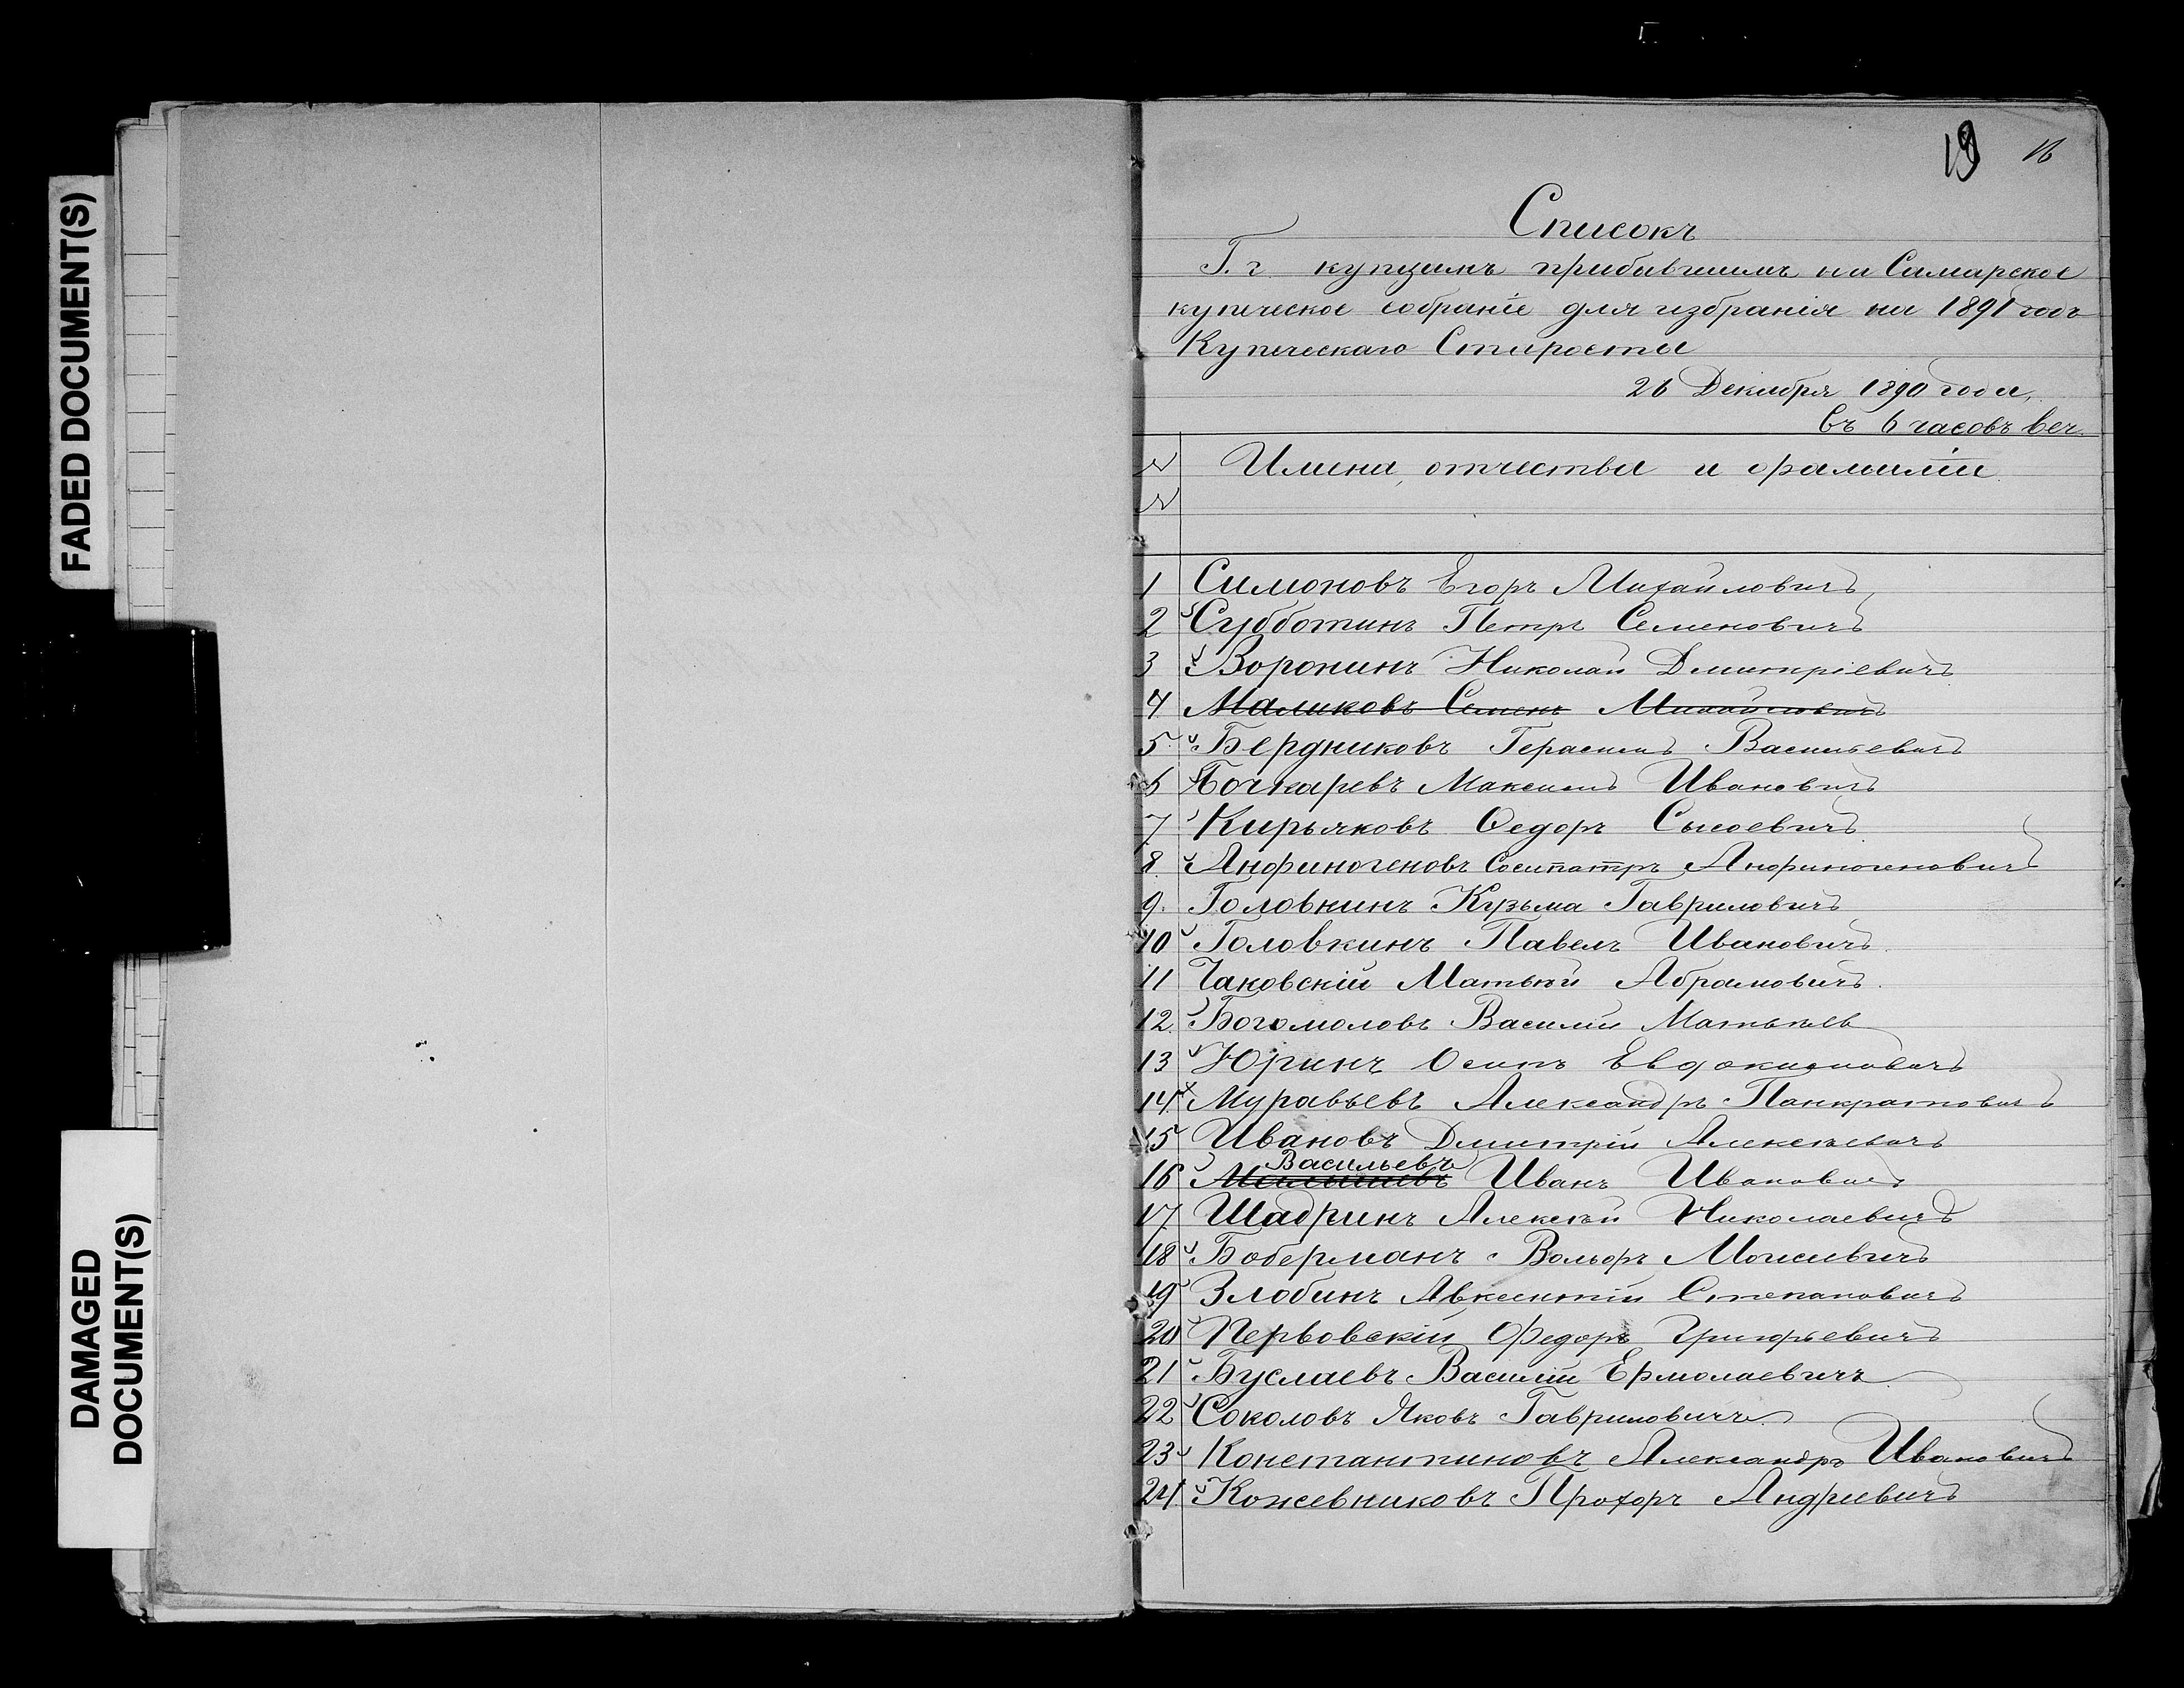 FADED DOCUMENT(S)
DAMAGED
DOCUMENT(S)
19 16
Списокъ
Г.г купцамъ прибывшимъ на Самарское
купеческое собраніе для избранія на 1891 годъ
Купеческаго Старосты
26 Декабря 1890 года,
въ 6 часовъ веч.
№ Имена, отчества и фамиліи.
№
1 Симоновъ Егоръ Михайловичъ
2 Субботинъ Петръ Семеновичъ
3 Воронинъ Николай Дмитріевичъ
4 Маликовъ Семенъ Михайловичъ
5. Бердниковъ Герасимъ Васильевичъ
6 Бочкаревъ Максимъ Ивановичъ
7 Кирьяковъ Ѳедоръ Сысоевичъ
8. Анфиногеновъ Сосипатръ Анфиногеновичъ
9. Головкинъ Кузьма Гавриловичъ
10 Головкинъ Павелъ Ивановичъ
11 Чаковскій Матвѣй Абрамовичъ.
12. Богомоловъ Василій Матвѣев
13 Юринъ Осипъ Евдокимовичъ
14. Муравьевъ Александръ Панкратовичъ
15 Ивановъ Дмитрій Алексѣевичъ
Васильевъ
16 Малышевъ Иванъ Ивановичъ
17 Шадринъ Алексѣй Николаевичъ
18 Боберманъ Вольфъ Моисѣевичъ
19 Злобинъ Авксентій Степановичъ
20 Перьвовскій Федоръ Григорьевичъ
21 Буслаевъ Василій Ермолаевичъ
22 Соколовъ Яковъ Гавриловичъ
23 Константиновъ Александръ Ивановичъ
24 Кожевниковъ Прохоръ Андреевичъ